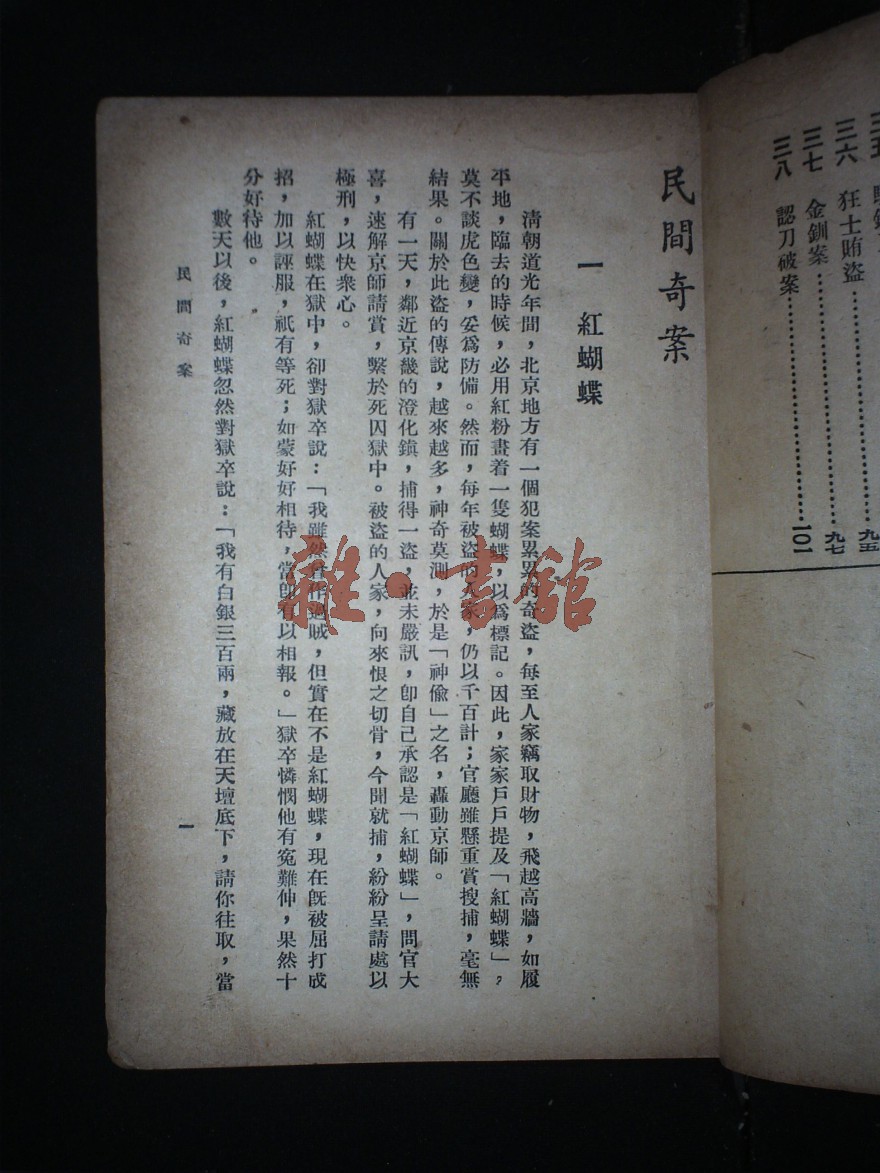 三六 狂士賄盜……九五
三七 金釧案……九七
三八 認刀破案……101
民間奇案
一 紅蝴蝶
清朝道光年間，北京地方有一個犯案累累的奇盜，每至人家竊取財物，飛越高牆，如履
平地，臨去的時候，必用紅粉畫着一隻蝴蝶，以爲標記。因此，家家戶戶提及「紅蝴蝶」，
莫不談虎色變，妥爲防備。然而，每年被盜的人家，仍以千百計；官廳雖懸重賞搜捕，毫無
結果。關於此盜的傳說，越來越多，神奇莫測，於是「神偷」之名，轟動京師。
有一天，鄰近京畿的澄化鎮，捕得一盜，並未嚴訊，卽自己承認是「紅蝴蝶」，問官大
喜，速解京師請賞，繫於死囚獄中。被盜的人家，向來恨之切骨，今聞就捕，紛紛呈請處以
極刑，以快衆心。
紅蝴蝶在獄中，卻對獄卒說：「我雖然曾作過賊，但實在不是紅蝴蝶，現在旣被屈打成
招，加以誣服，祇有等死；如蒙好好相待，當卽有以相報。」獄卒憐憫他有冤難伸，果然十
分好待他。
數天以後，紅蝴蝶忽然對獄卒說：「我有白銀三百兩，藏放在天壇底下，請你往取，當
民間奇案
一
雜·書館